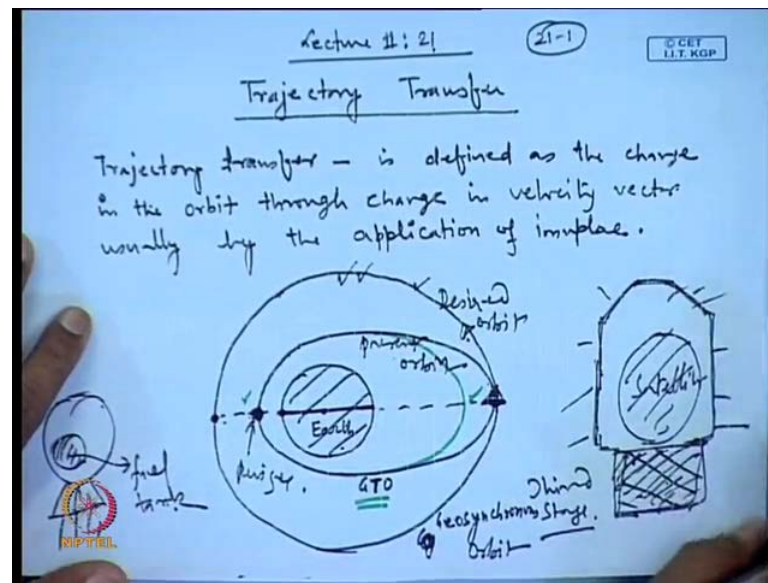 Lecture 11:21
21-1
© CET
I.I.T. KGP
Trajectory Transfer
Trajectory transfer – is defined as the change
in the orbit through change in velocity vector
usually by the application of imuplae.
Desired
orbit
present
orbit
Earth
Perigee.
GTO
Satellite
Third
Stage.
Geosynchronous
orbit
fuel
tank
NPTEL